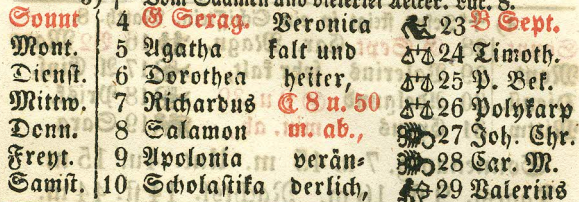 Vom Saamen und vielerley Aecker. Luc. 8.
Sonnt 4 G Sexag. Veronica 23 B Sept.
Mont. 5 Agatha kalt und 24 Timoth.
Dienst. 6 Dorothea heiter, 25 P. Bek.
Mittw. 7 Richardus ☾ 8 u. 50 26 Polykarp
Donn. 8 Salamon m. ab., 27 Joh. Chr.
Freyt. 9 Apolonia verän- 28 Car. M.
Samst. 10 Scholastika derlich, 29 Valerius